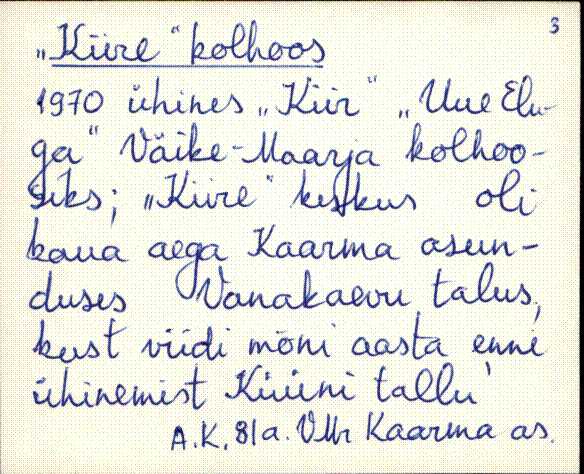 3
„Kiire“ kolhoos
1970 ühines „Kiir“ „Uue Elu-
ga“ Väike-Maarja kolhoo-
siks; „Kiire“ keskus oli
kaua aega Kaarma asun-
duses Vanakaevu talus,
kust viidi mõni aasta enne
ühinemist Küüni tallu
A.K. 81a. VMr Kaarma as.